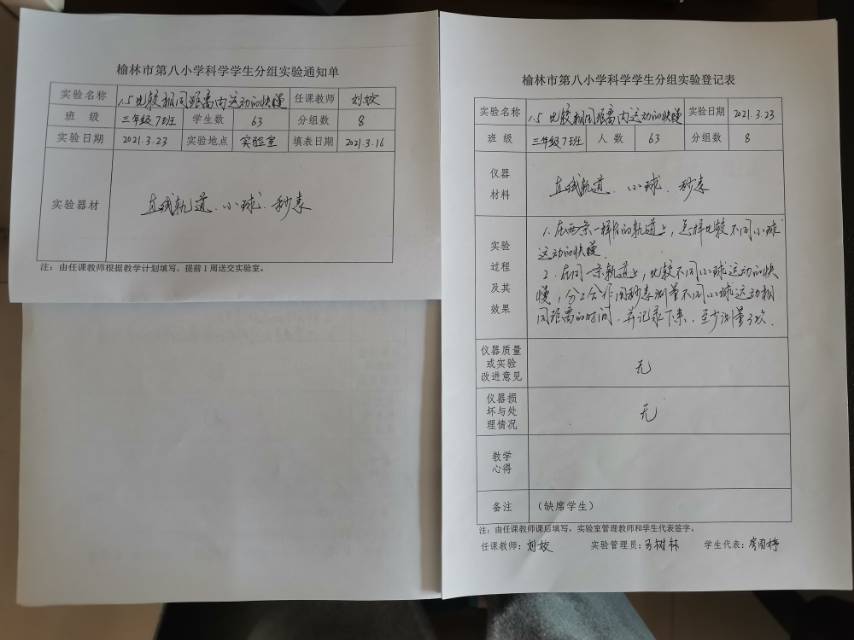 榆林市第八小学科学学生分组实验通知单
实验名称 1.5比较相同距离内运动的快慢 任课教师 刘姣
班 级 三年级7班 学生数 63 分组数 8
实验日期 2021.3.23 实验地点 实验室 填表日期 2021.3.16
实验器材 直线轨道、小球、秒表
注：由任课教师根据教学计划填写，提前1周送交实验室。
榆林市第八小学科学学生分组实验登记表
实验名称 1.5比较相同距离内运动的快慢 实验日期 2021.3.23
班 级 三年级7班 人 数 63 分组数 8
仪器
材料
直线轨道、小球、秒表
实验
过程
及其
效果
1.在两条一样的轨道上，怎样比较不同小球
运动的快慢
2.在同一条轨道上，比较不同小球运动的快
慢，分工合作用秒表测量不同小球运动相
同距离的时间，并记录下来，至少测量3次.
仪器质量
或实验
改进意见
无
仪器损
坏与处
理情况
无
教学
心得
备注 （缺席学生）
注：由任课教师课后填写，实验室管理教师和学生代表签字。
任课教师：刘姣 实验管理员：马树林 学生代表：